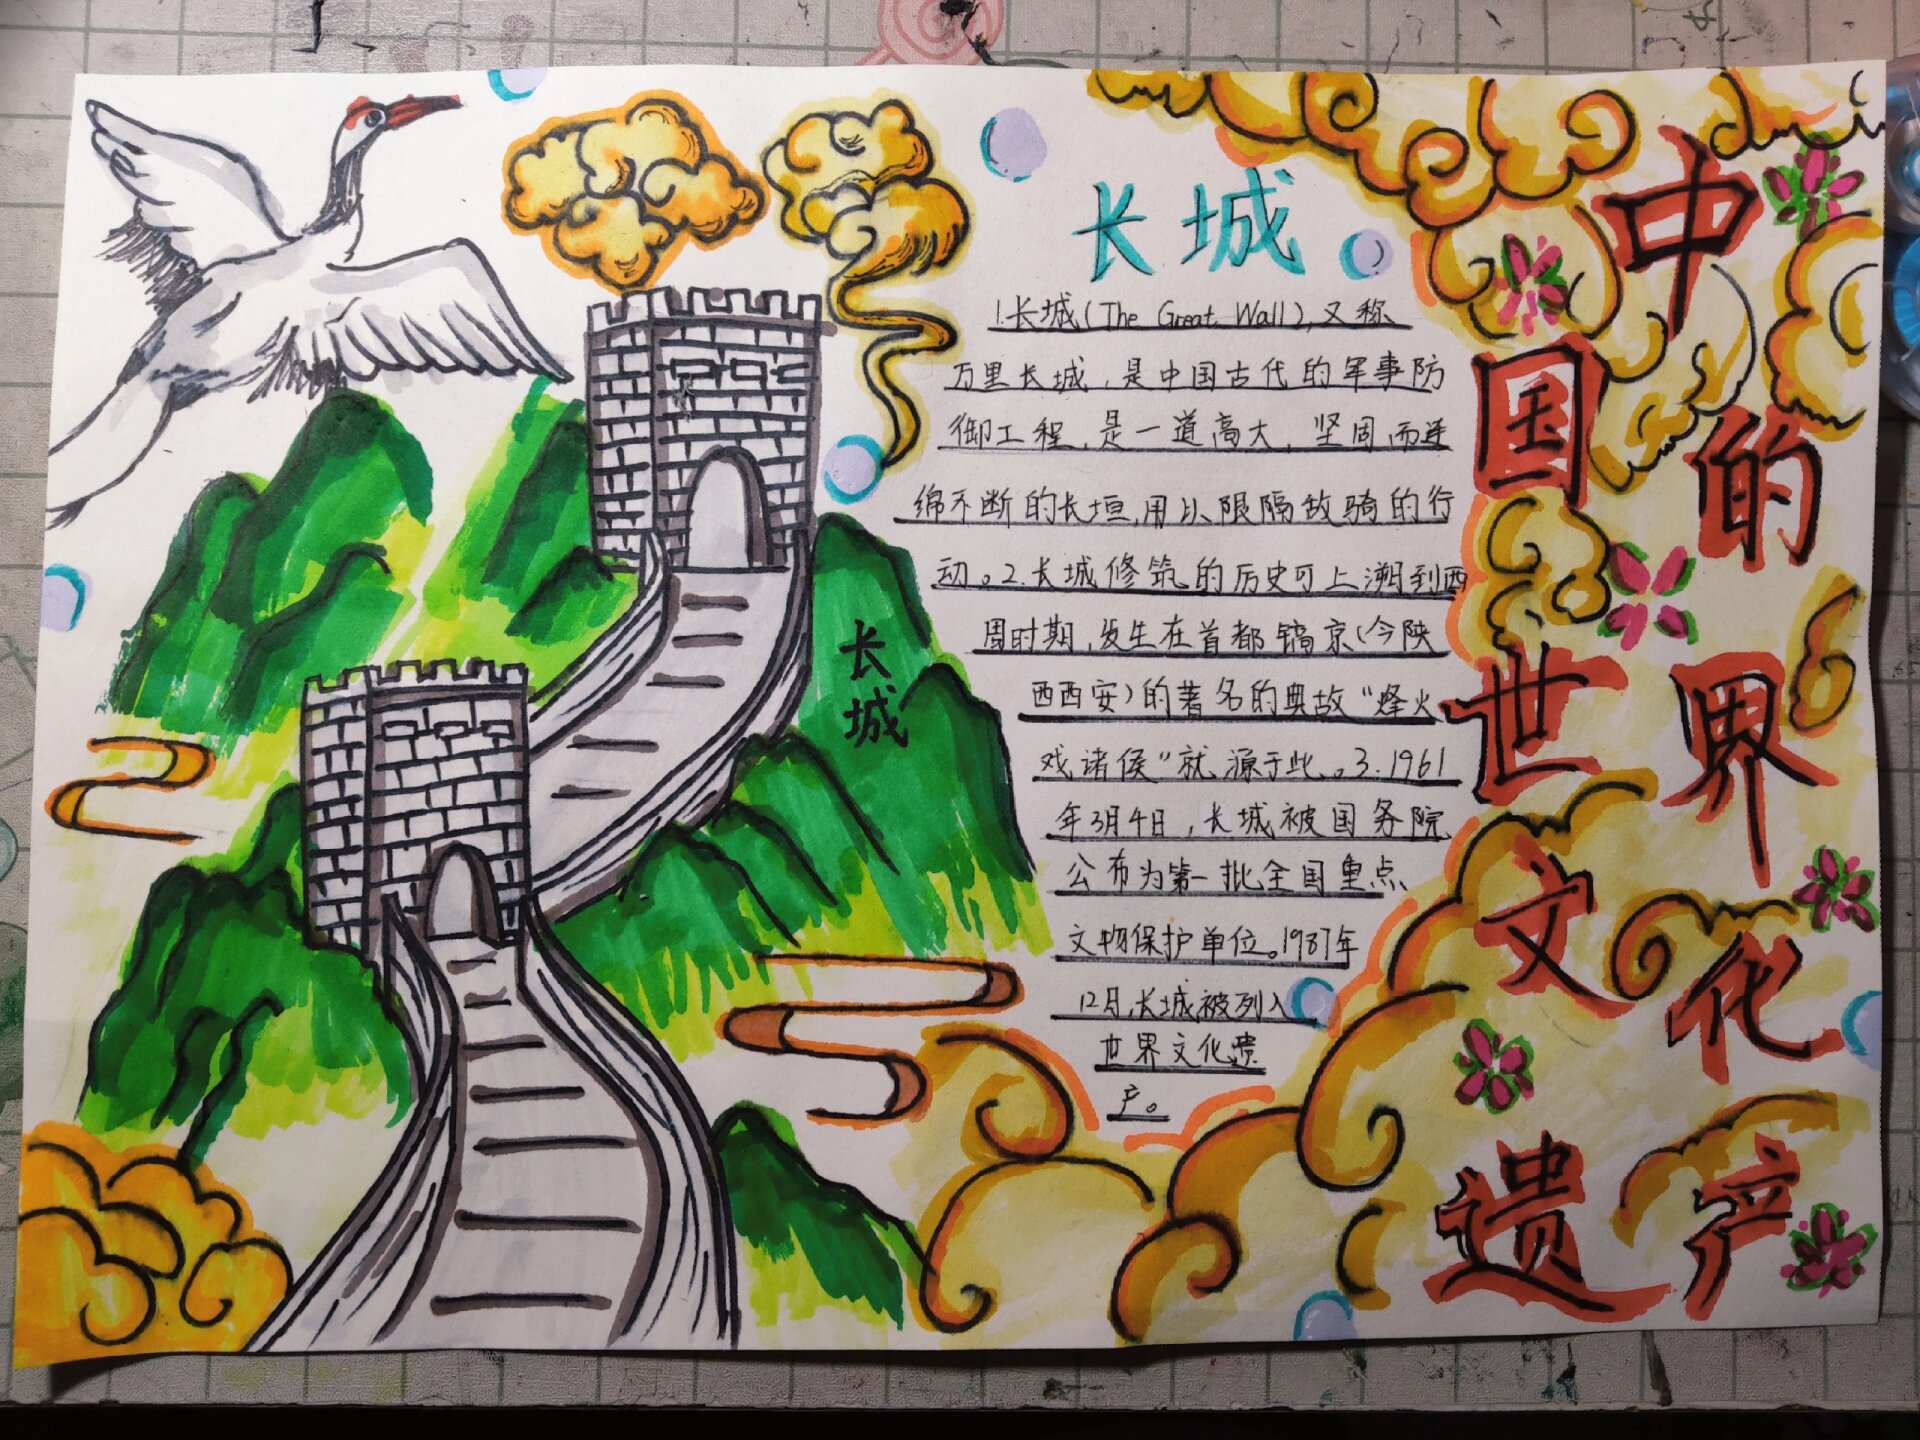 中国的世界文化遗产
长城
1.长城(The Great Wall),又称
万里长城,是中国古代的军事防
御工程,是一道高大,坚固,而连
绵不断的长垣,用以限隔敌骑的行
动。2.长城修筑的历史可上溯到西
周时期,发生在首都镐京(今陕
西西安)的著名的典故"烽火
戏诸侯"就源于此。3.1961
年3月4日,长城被国务院
公布为第一批全国重点
文物保护单位。1987年
12月,长城被列入
世界文化遗
产。
长城